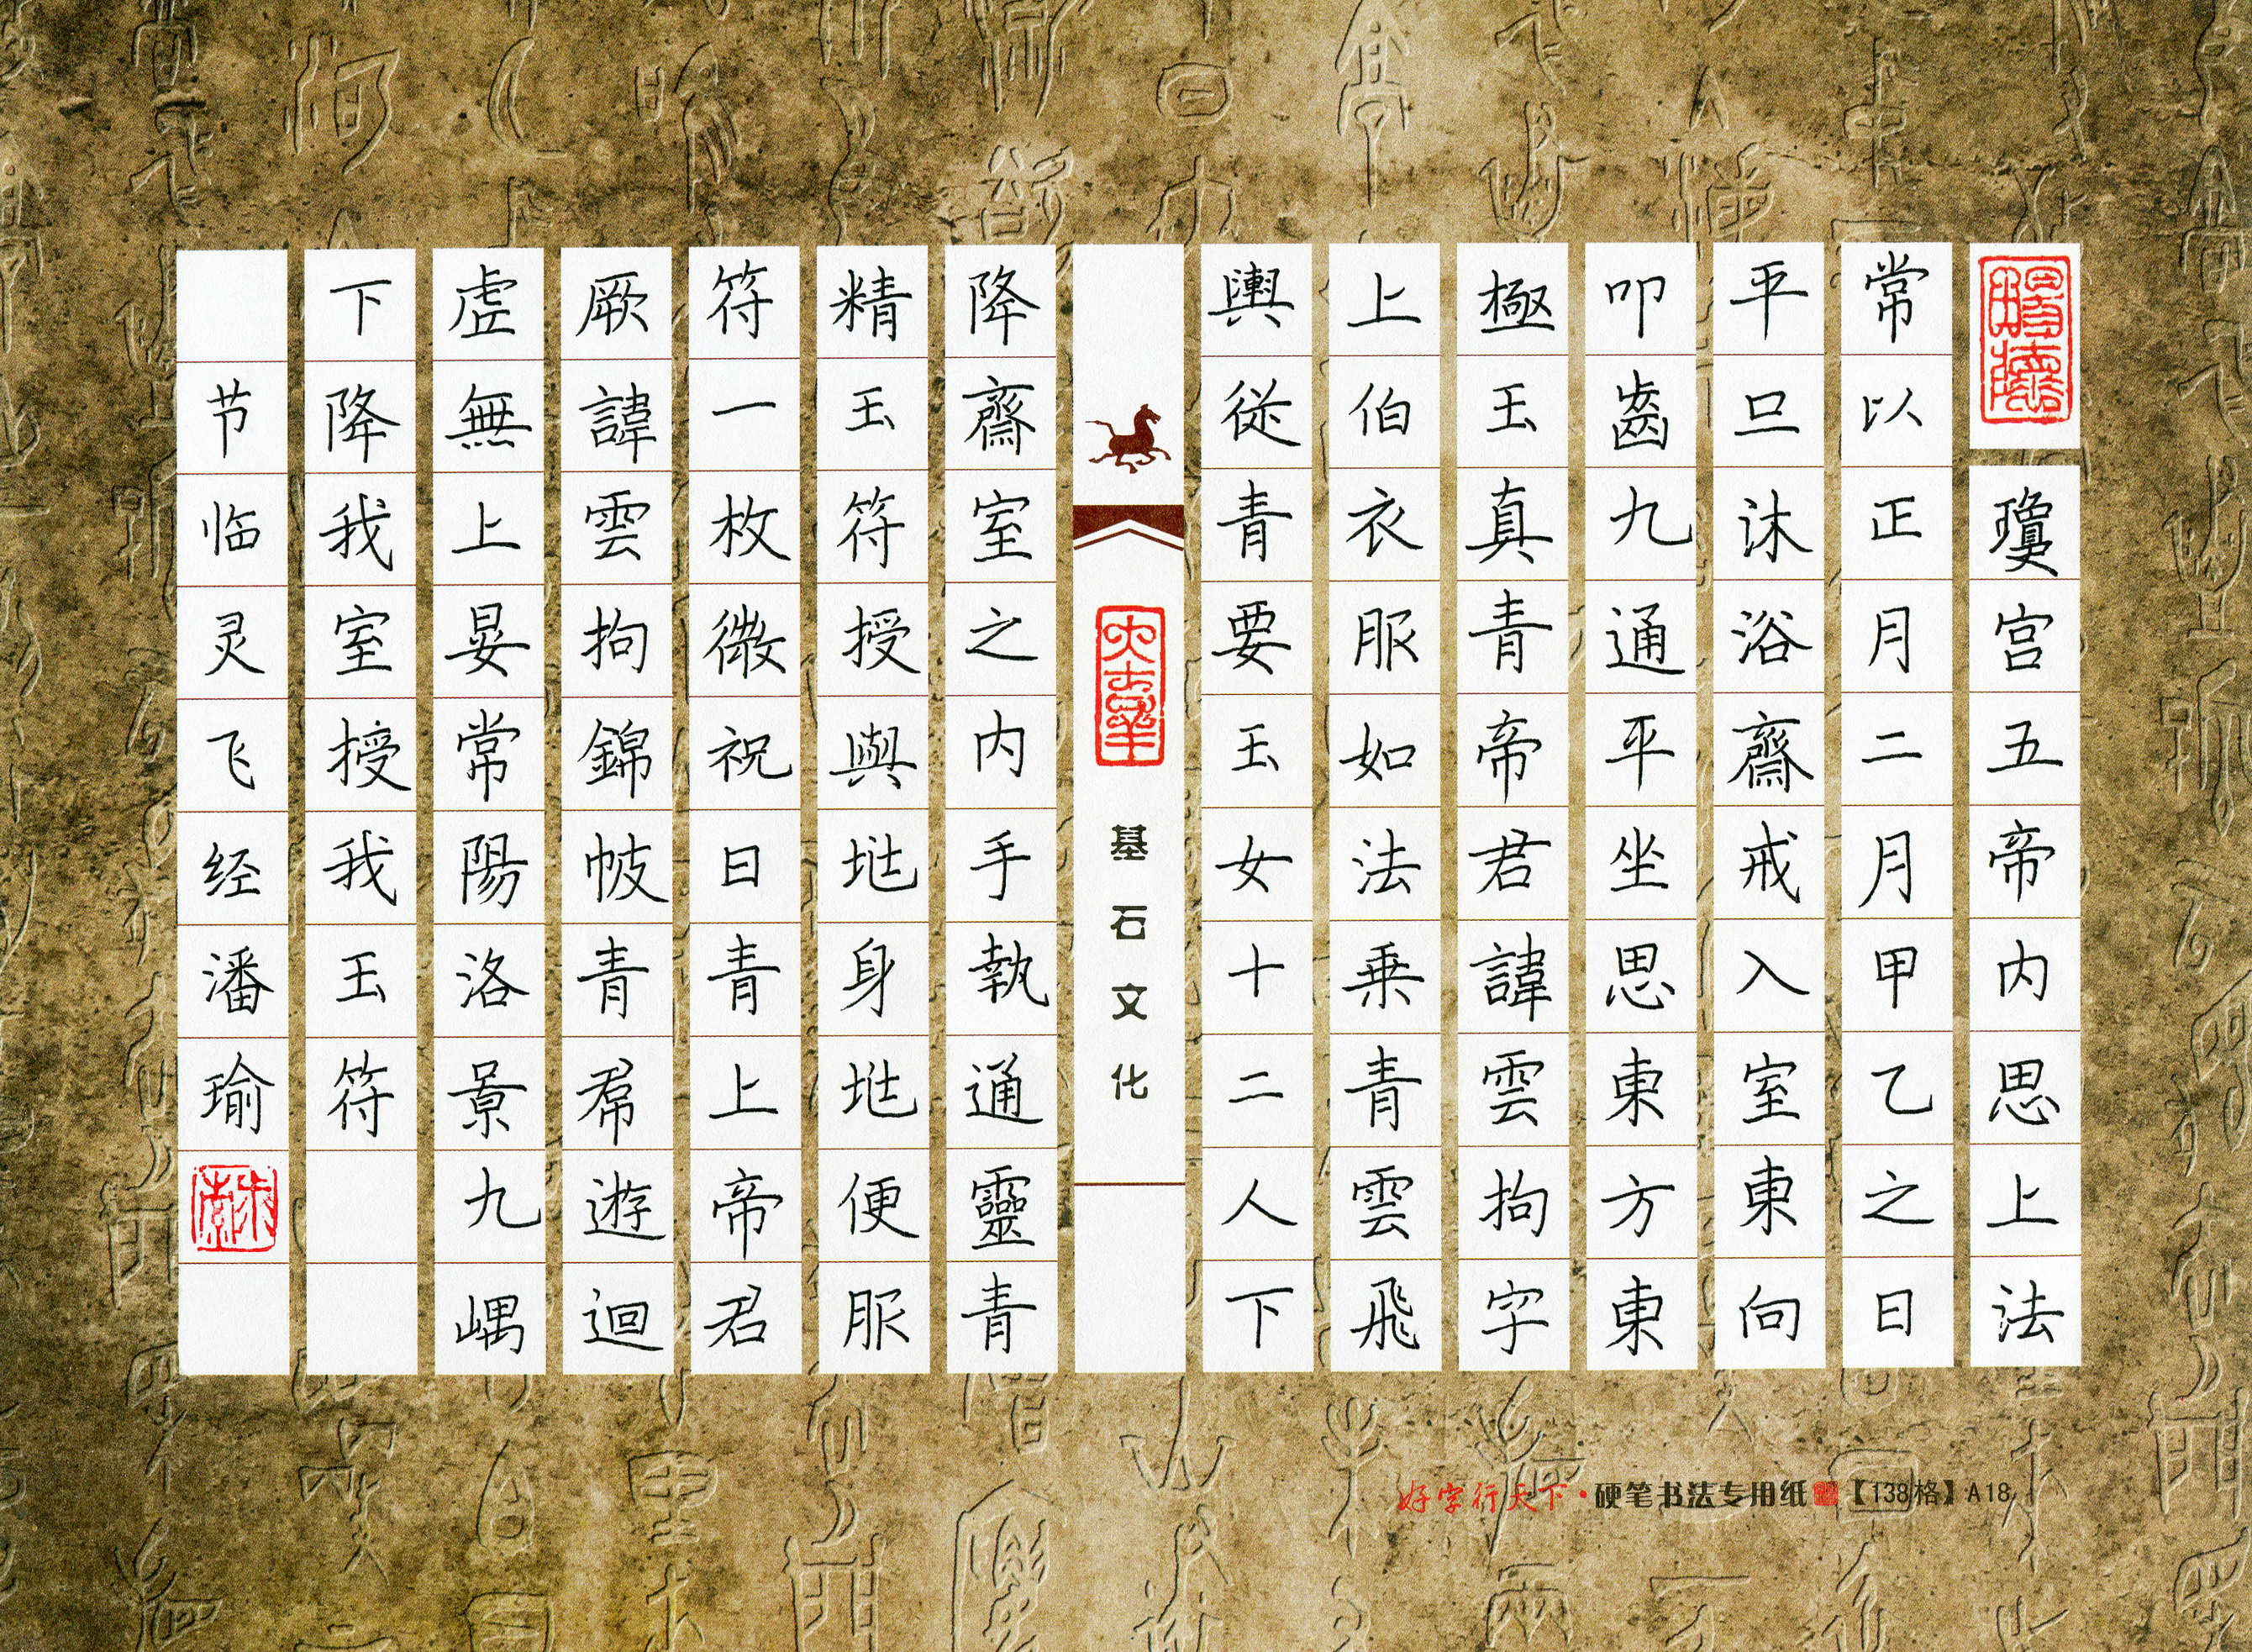 瓊宫五帝内思上法
常以正月二月甲乙之日
平旦沐浴齋戒入室東向
叩齒九通平坐思東方東
極玉真青帝君諱雲拘字
上伯衣服如法乗青雲飛
輿從青要玉女十二人下
基石文化
降齋室之内手執通靈青
精玉符授與地身地便服
符一枚微祝曰青上帝君
厥諱雲拘錦帔青帬遊迴
虛無上晏常陽洛景九嵎
下降我室授我玉符
节临灵飞经潘瑜
好字行天下·硬笔书法专用纸【138格】A18